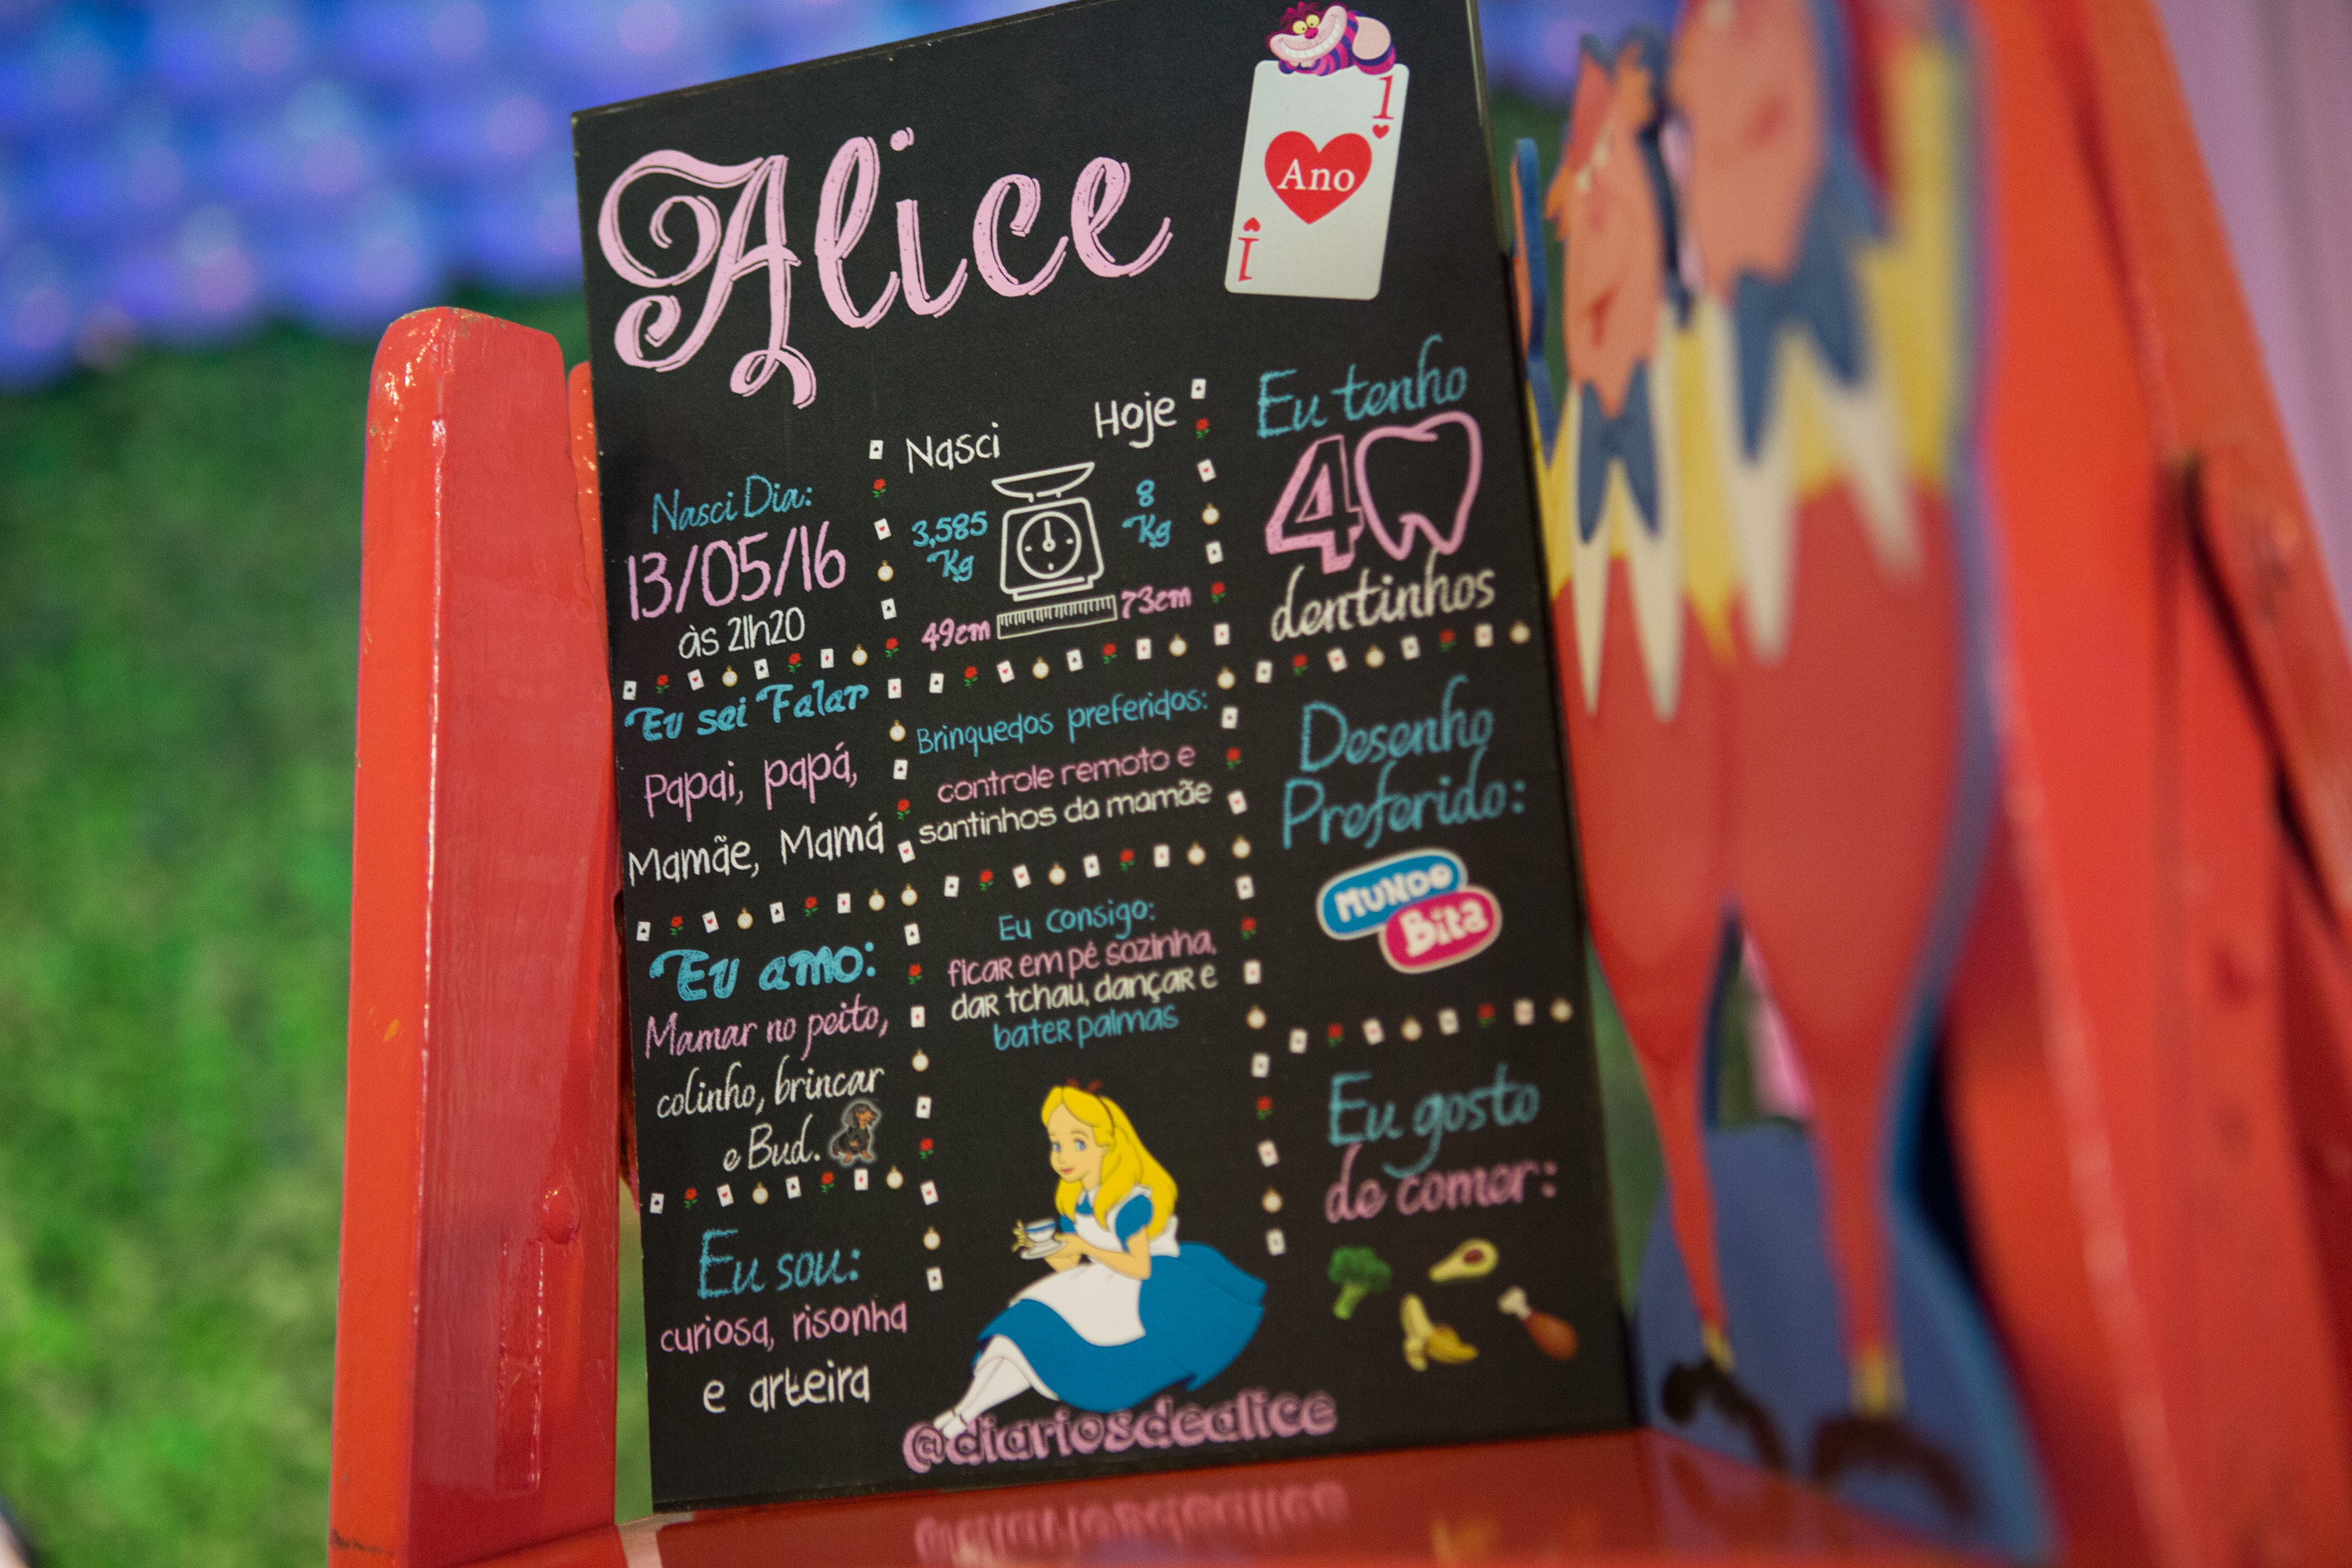 Alice
1
Ano
1
Nasci Dia:
13/05/16
às 21h20
Nasci
Hoje
3,585
Kg
8
Kg
49cm
73cm
Eu tenho
4
dentinhos
Eu sei Falar
Papai, papá,
Mamãe, Mamá
Brinquedos preferidos:
controle remoto e
santinhos da mamãe
Desenho
Preferido:
MUNDO
Bita
Eu amo:
Mamar no peito,
colinho, brincar
e Bud.
Eu consigo:
ficar em pé sozinha,
dar tchau, dançar e
bater palmas
Eu gosto
de comer:
Eu sou:
curiosa, risonha
e arteira
@diariosdealice